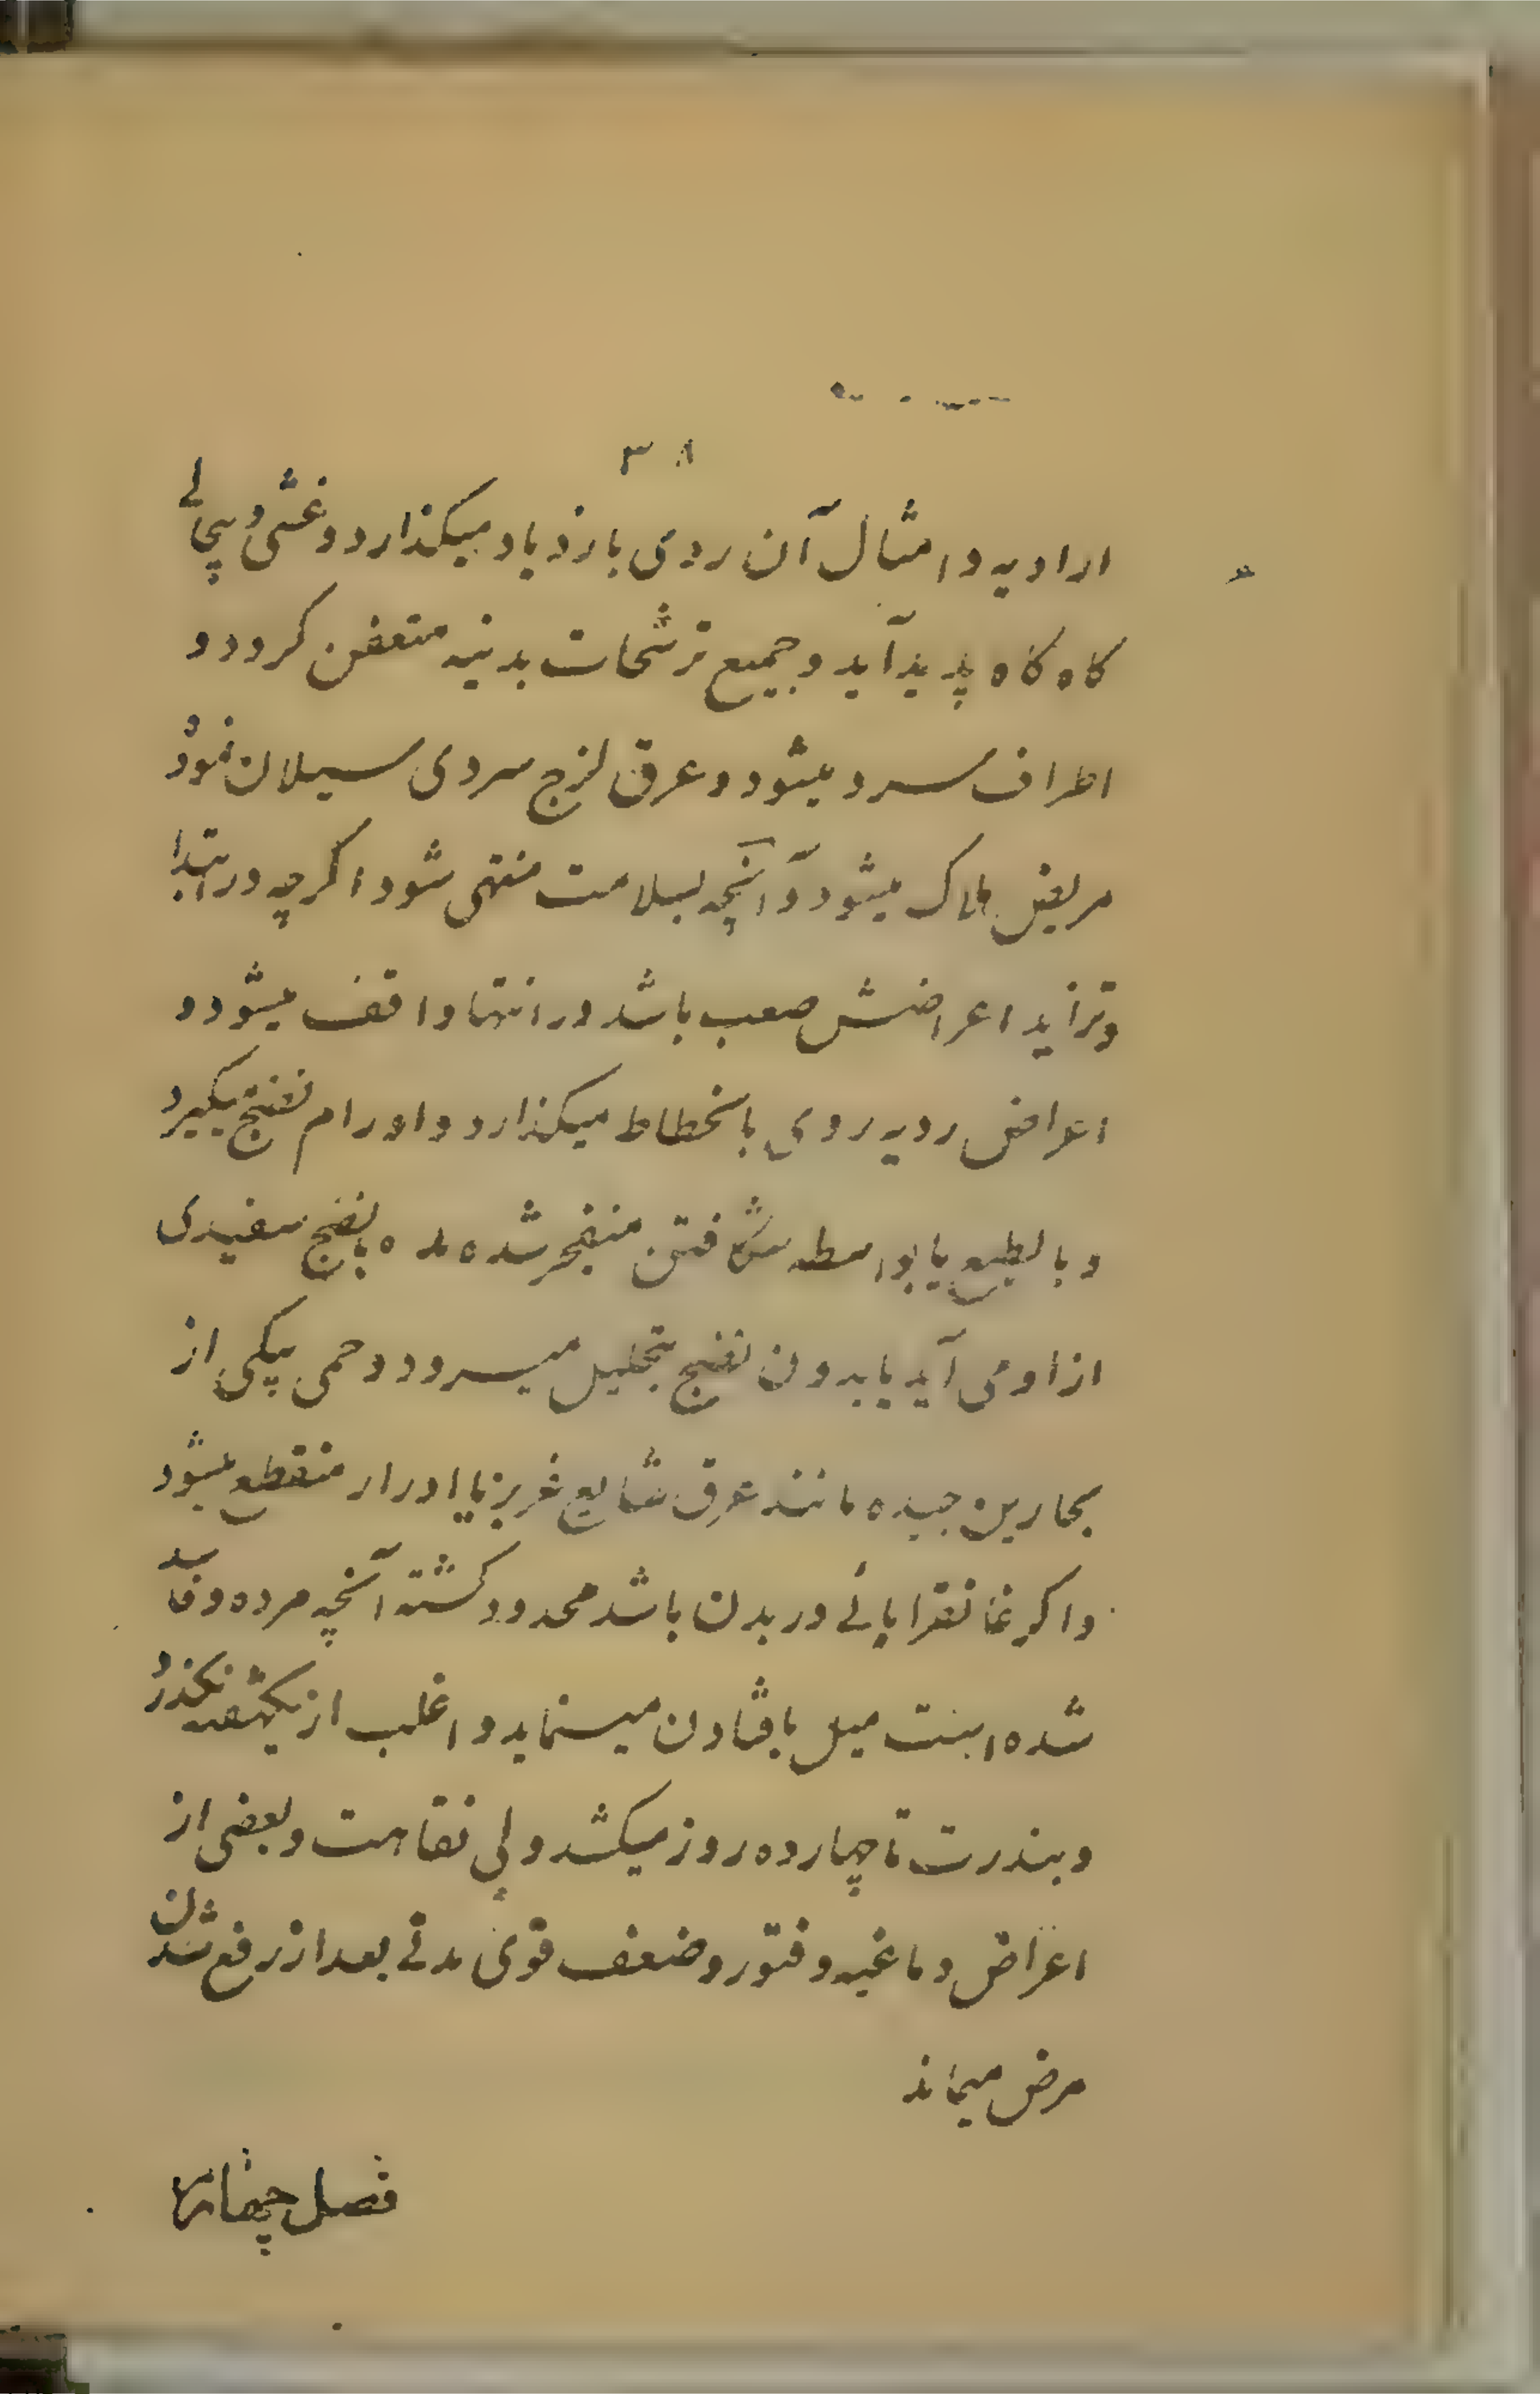 ۳۸
ارادیه و امثال آن روی بازدیاد میکذارد و غشی و بیحالی
کاه کاه پدید آید و جمیع ترشحات بدنیه متعفن کردد و
اطراف سرد میشود و عرق لزج سردی سیلان نموده
مریض هلاک میشود و آنچه بسلامت منتهی شود اکرچه در ابتدا
و تزاید اعراضش صعب باشد در انتها واقف میشود و
اعراض ردیه روی بانحطاط میکذارد و اورام نضج میکیرد
و بالطبع یا بواسطه شکافتن منفجر شده مده بانضج سفیدی
از او می آید یا بدون نضج بتحلیل میرود و حمی بیکی از
بحارین جیده مانند عرق شایع غریز یا ادرار منقطع میشود
و اکر غانقرایائی در بدن باشد محدود کشته آنچه مرده و فاسد
شده است میل بافتادن مینماید و اغلب از یکهفته نکذرد
و بندرت تا چهارده روز میکشد ولی نقاهت و بعضی از
اعراض دماغیه و فتور و ضعف قوی مدتی بعد از رفع شدن
مرض میماند
فصل چهارم